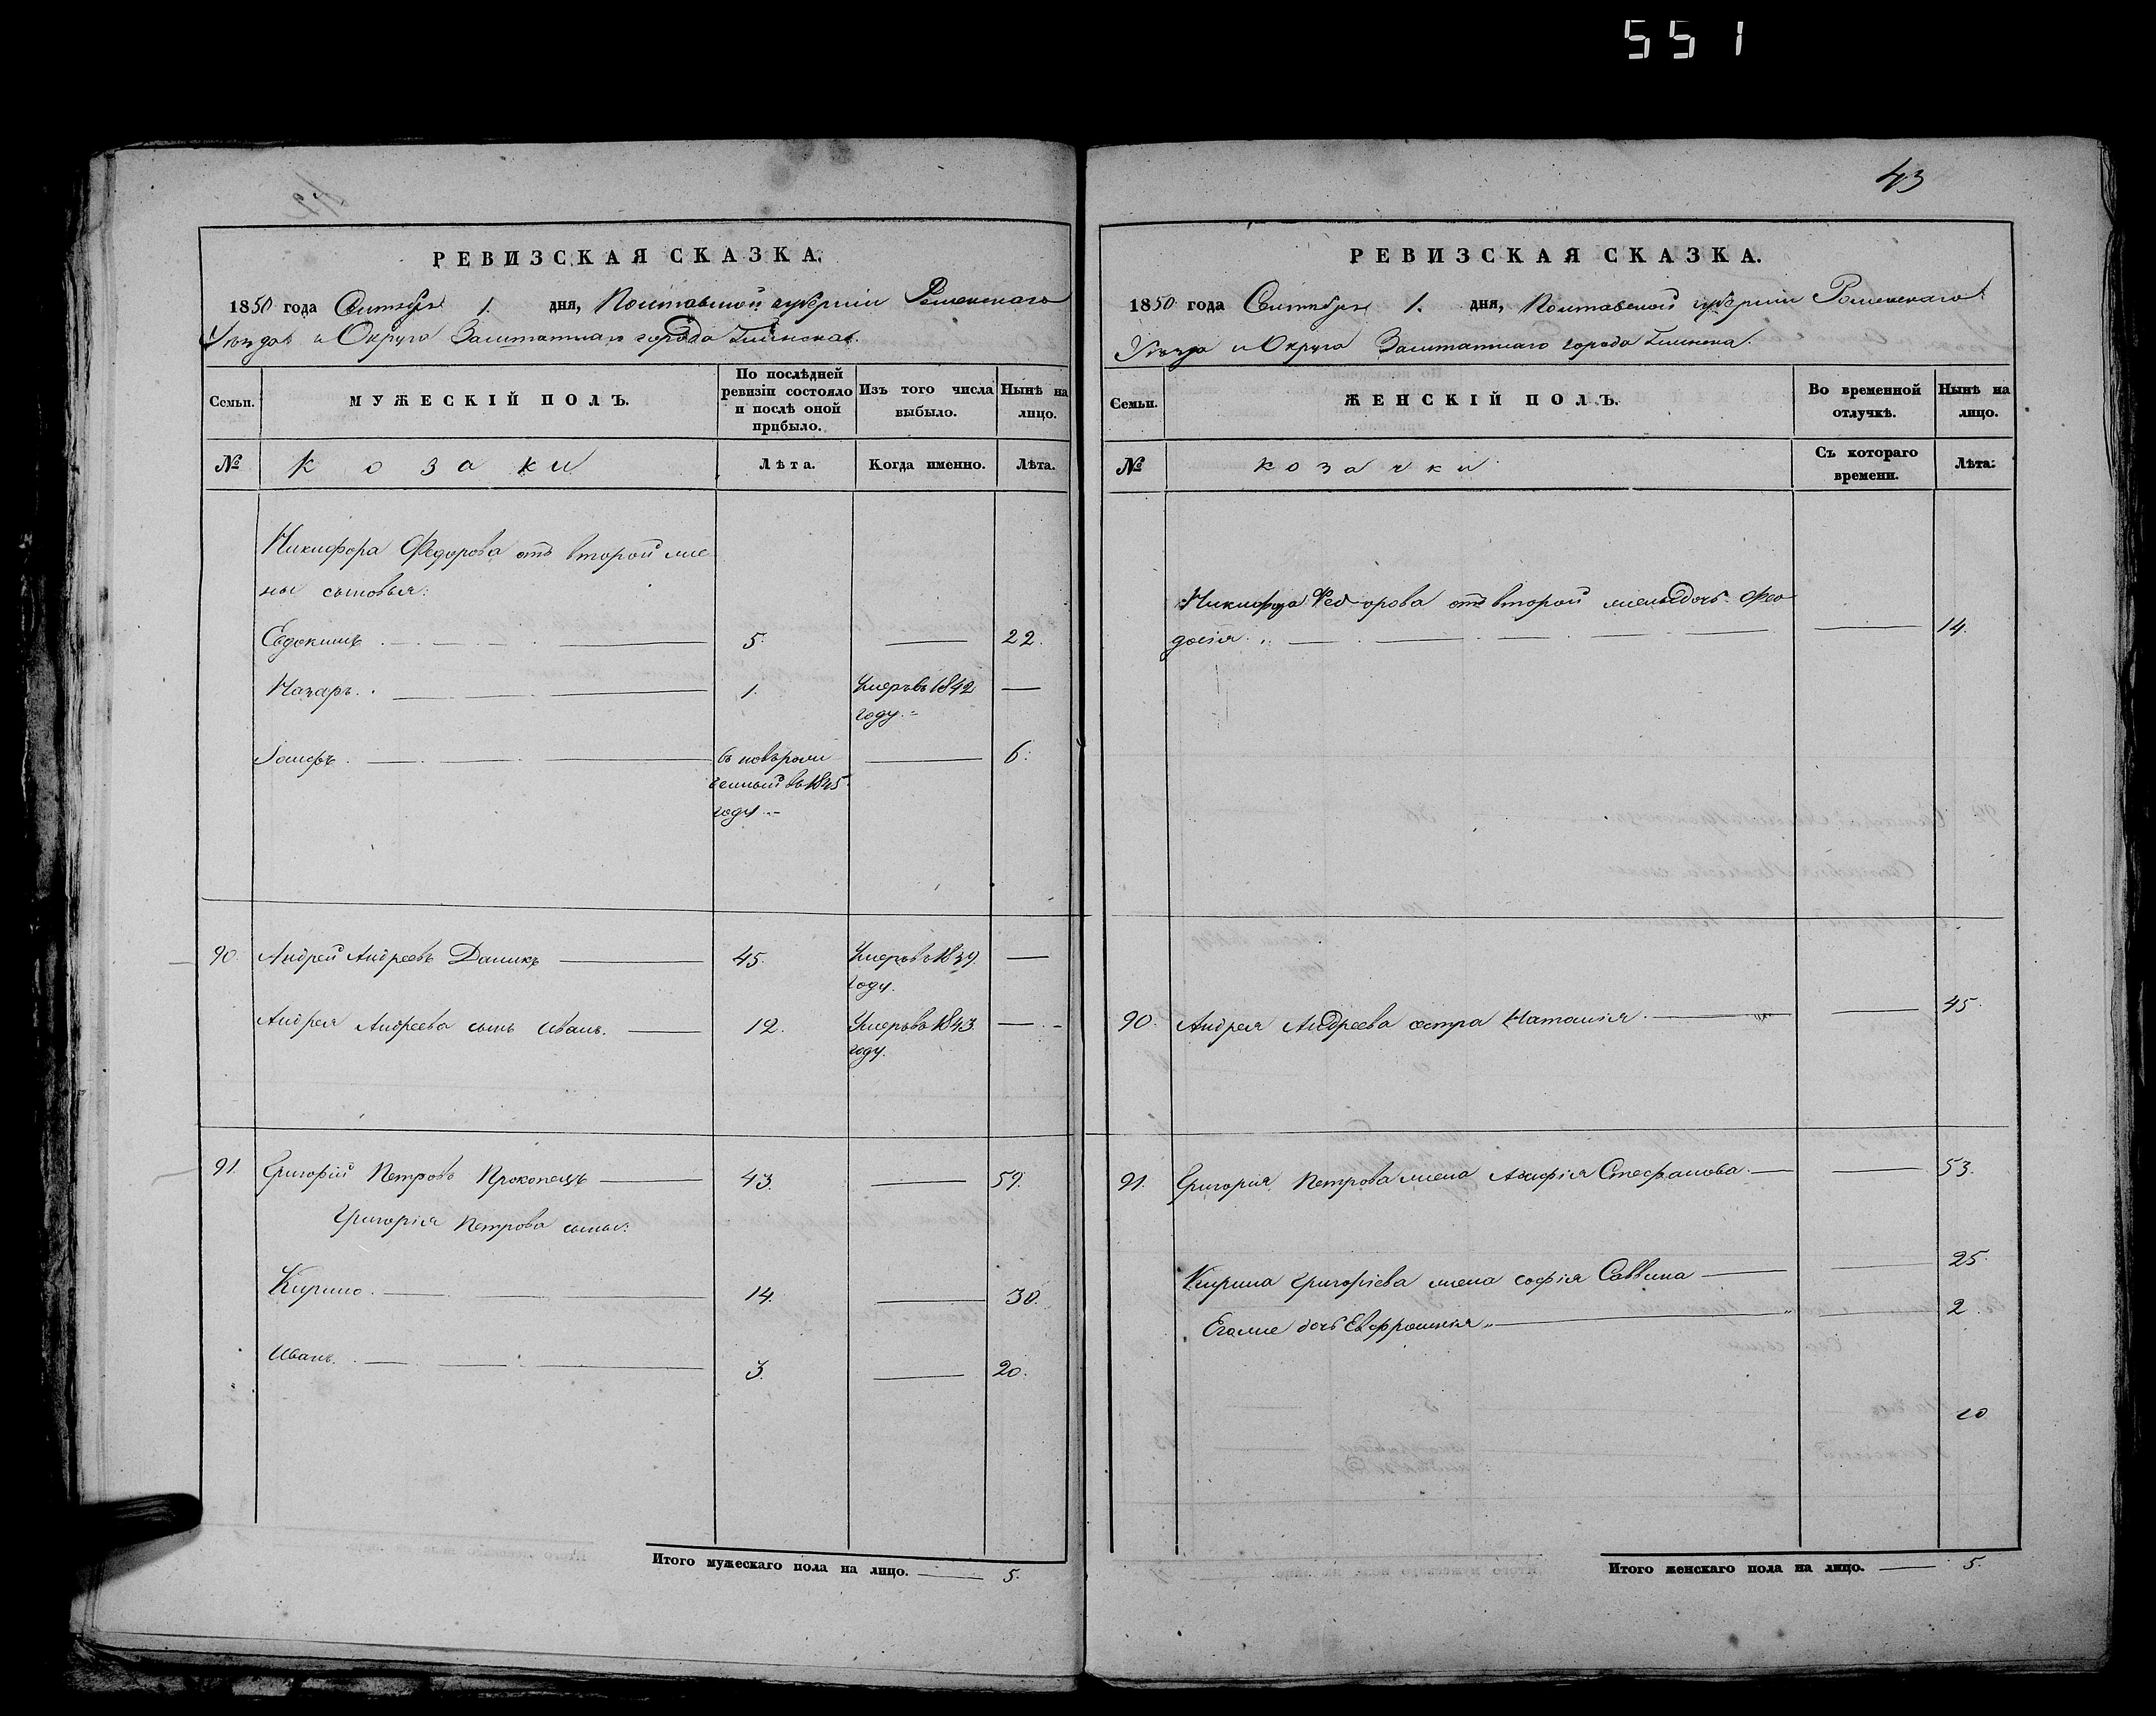 551
43
РЕВИЗСКАЯ СКАЗКА.
1850 года Сентября 1. дня, Полтавской губерніи Роменскаго
Уѣзда и Округа Заштатнаго города Глинска.
Семьи.
МУЖЕСКІЙ ПОЛЪ.
По послѣдней ревизіи состояло и послѣ оной прибыло.
Изъ того числа выбыло.
Нынѣ на лицо.
№
Козаки
Лѣта.
Когда именно.
Лѣта.
Никифора Федорова отъ второй же
ны сыновья:
Евдокимъ 5. 22.
Назаръ. 1. Умеръ въ 1842 году.
Іосифъ. 6.
въ 1845
году
90. Андрей Андреевъ 45. Умеръ в 1839. году.
Андрея Андреева сынъ Иванъ. 12. Умеръ въ 1843. году.
91. Григорій Петровъ Прокопецъ 43. 59.
Григорія Петрова сыны:
Кирило. 14. 30.
Иванъ. 3. 20.
Итого мужескаго пола на лицо. 5.
РЕВИЗСКАЯ СКАЗКА.
1850 года Сентября 1. дня, Полтавской губерніи Роменскаго
Уѣзда и Округа Заштатнаго города Глинска.
Семьи.
ЖЕНСКІЙ ПОЛЪ.
Во временной отлучкѣ.
Нынѣ на лицо.
№
козачки
Съ котораго времени.
Лѣта:
Никифора Федорова отъ второй жены дочь Фео
досія. 14.
90. Андрея Андреева сестра Наталія. 45.
91. Григорія Петрова жена Агафія Стефанова. 53.
Кирила Григоріева жена Софія Саввина 25.
Егоже дочь Евфросинія 2.
20
Итого женскаго пола на лицо. 5.